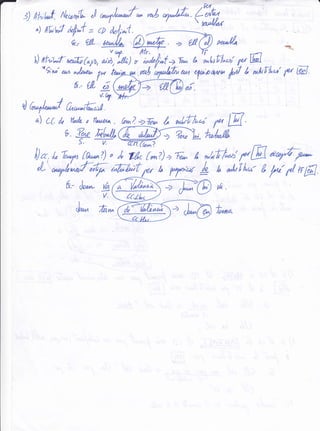 3) Atribut. Necessita el complement un verb copulatiu. ser estar semblar
a) Atribut definit = CD definit.
Ex: Ell sembla el metge. → Ell el sembla
v. cop. Atr. PF
b) Atribut neutre (açò, això, allò) o indefinit → Fem la substitució per ho
Ex: Ell és metge → Ell ho és.
v. cop Atr.
4) Complement Circumstancial.
a) CC de Mode o Manera. Com? → Fem la substitució per hi.
Ex: Pere treballa de valent → Pere hi treballa
S. V. CCM (Com?
b) CC de Temps (Quan?) o de Lloc (on?) → Fem la substitució per hi excepte quan
el complement estiga introduït per la preposició de la substitució la farà el PF en.
Ex: Joan va a València → Joan hi va.
V. CC Lloc
Joan torna de València → Joan en torna
CC Lloc